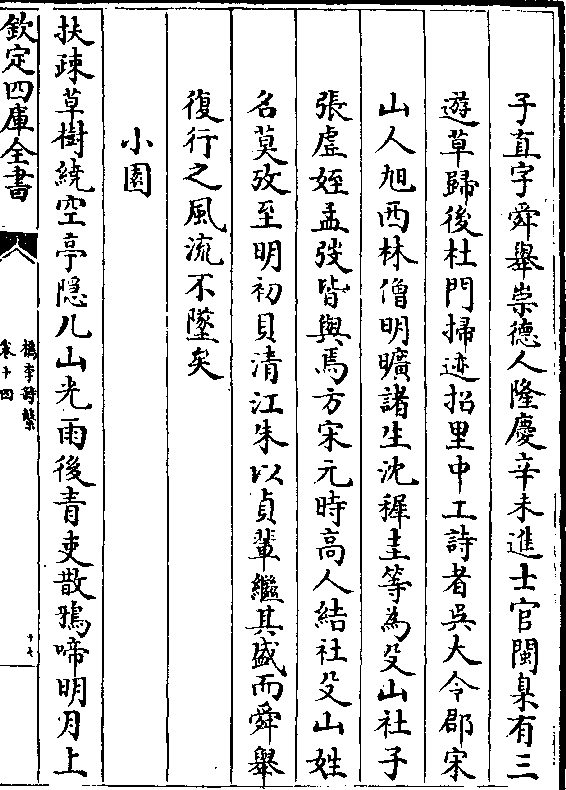 子直字舜舉崇德人隆慶辛未進士官閩臬有三
遊草歸後杜門掃迹招里中工詩者吳大令郡宋
山人旭西林僧明曠諸生沈穉圭等為殳山社子
張虛姪孟弢皆與焉方宋元時高人結社殳山姓
名莫攷至明初貝清江朱以貞輩繼其盛而舜舉
復行之風流不墜矣
小園
扶疎草樹繞空亭隠几山光雨後青吏散鴉啼明月上
欽定四庫全書
檇李詩繫
卷十四
十七